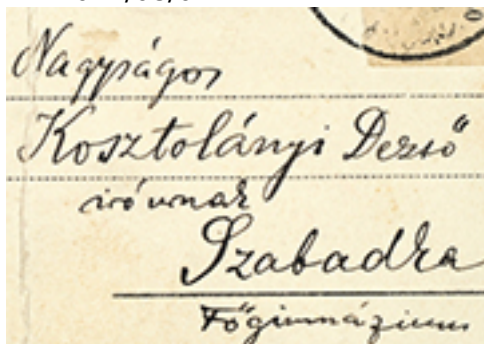 Nagyságos
Kosztolányi Dezső
író urnak
Szabadka
Főgimnázium